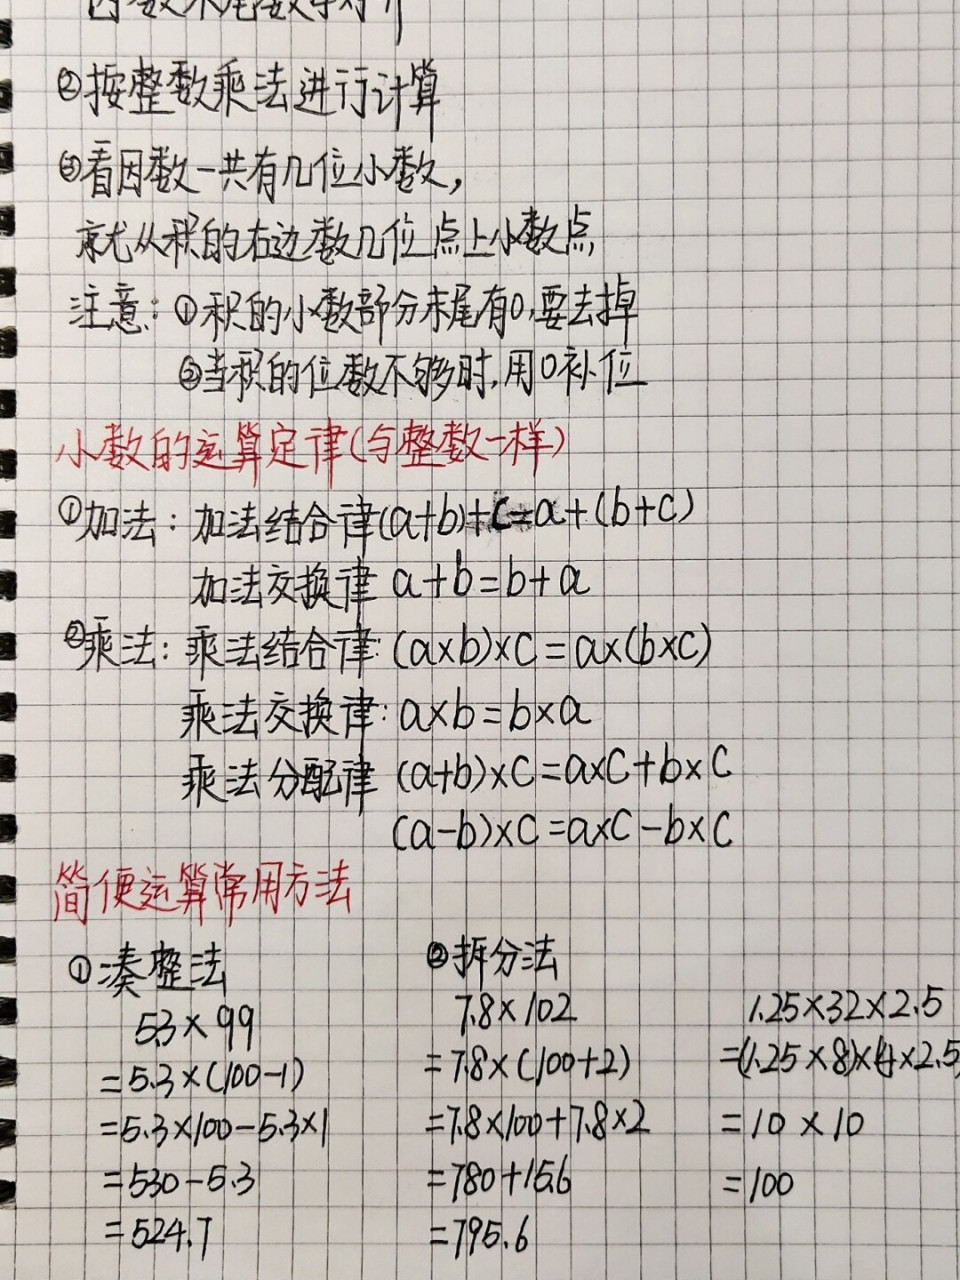 ②按整数乘法进行计算
③看因数一共有几位小数,
就从积的右边数几位点上小数点
注意: ①积的小数部分末尾有0,要去掉
②当积的位数不够时,用0补位
小数的运算定律(与整数一样)
①加法: 加法结合律(a+b)+c=a+(b+c)
加法交换律 a+b=b+a
②乘法: 乘法结合律: (a×b)×c=a×(b×c)
乘法交换律: a×b=b×a
乘法分配律 (a+b)×c=a×c+b×c
(a-b)×c=a×c-b×c
简便运算常用方法
①凑整法
5.3×99
=5.3×(100-1)
=5.3×100-5.3×1
=530-5.3
=524.7
②拆分法
7.8×102
=7.8×(100+2)
=7.8×100+7.8×2
=780+15.6
=795.6
1.25×32×2.5
=(1.25×8)×(4×2.5
=10×10
=100